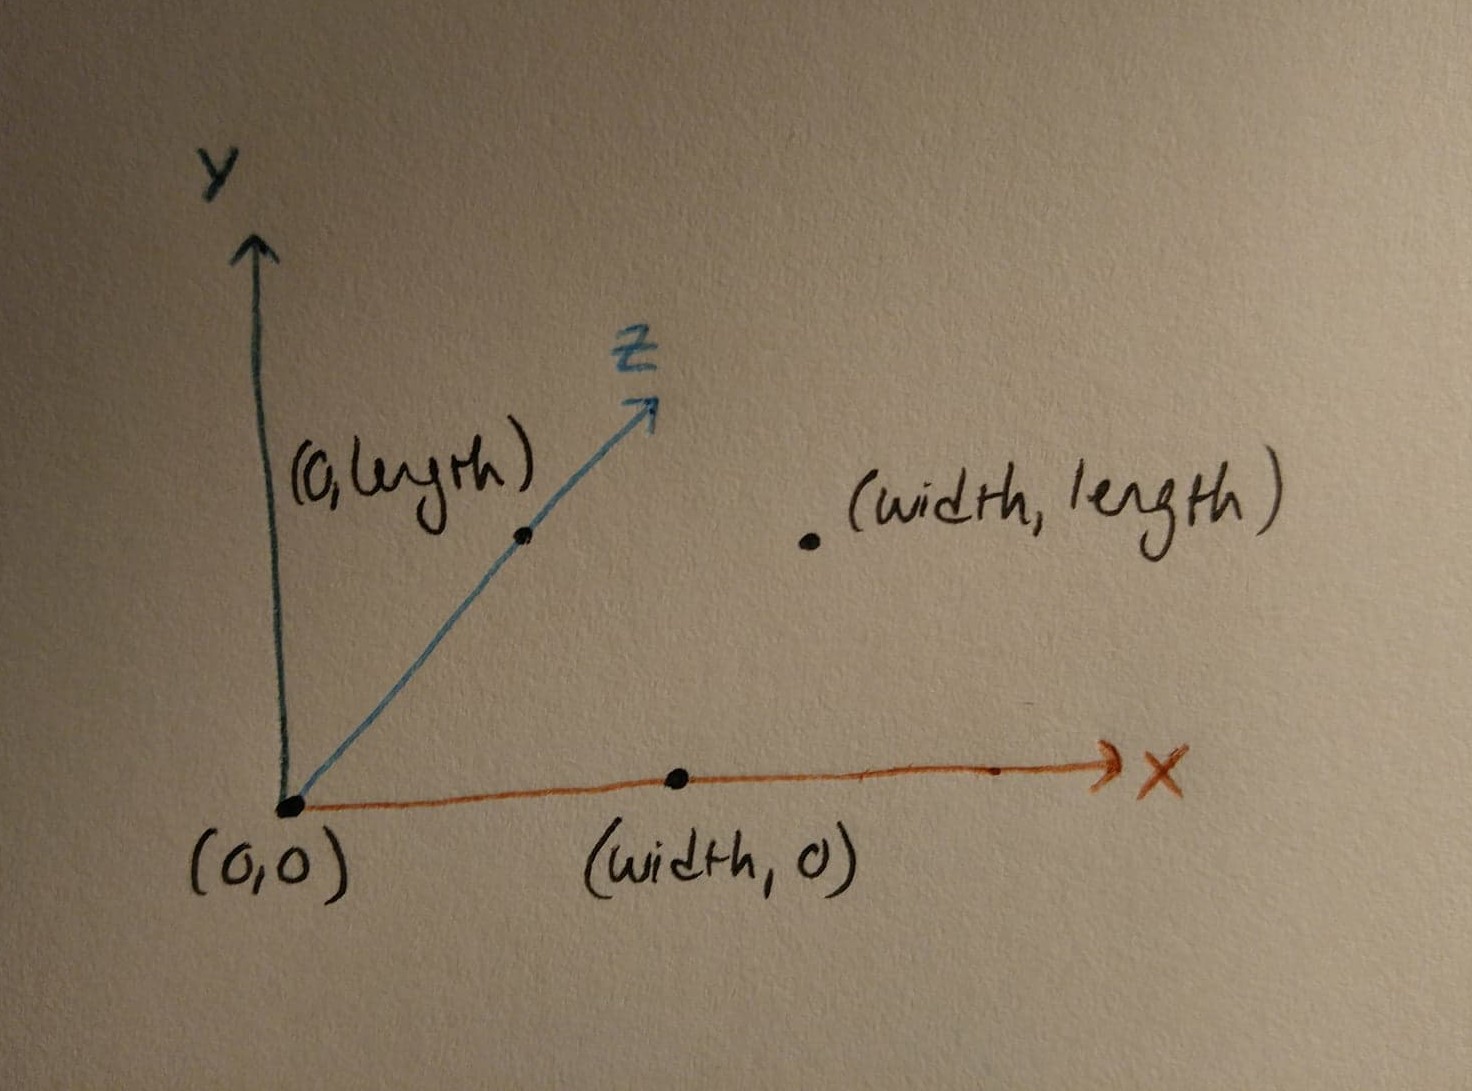 Y
Z
(0, length)
(width, length)
X
(0,0)
(width, 0)